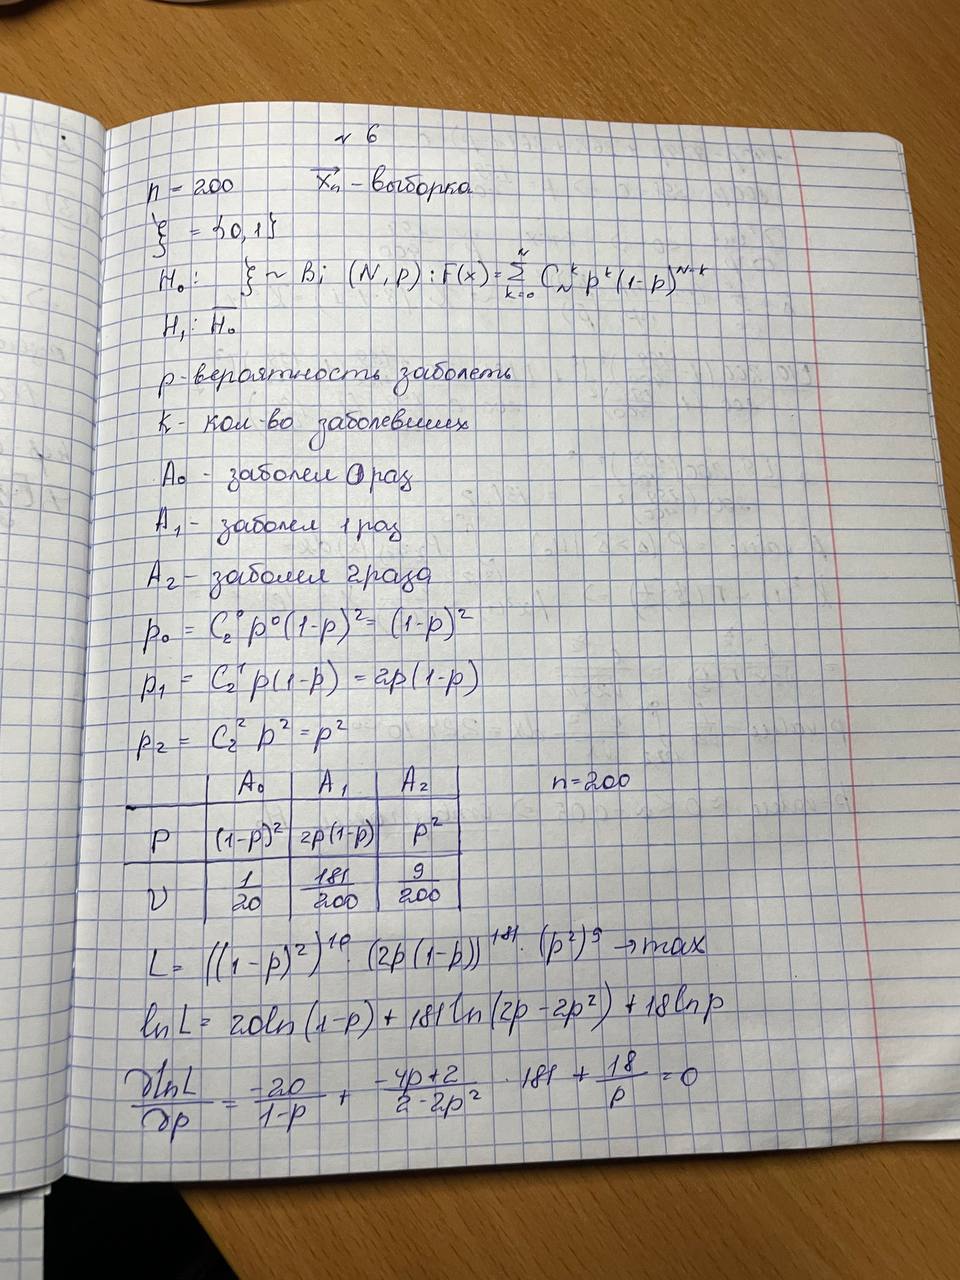 № 6
n = 200 X⃗n - выборка
ξ = {0,1}
H₀: ξ ~ Bi (N, p) : F(x) = Σ_{k=0}^{N} C_N^k p^k (1-p)^{N-k}
H₁: H̅₀
p - вероятность заболеть
k - кол-во заболевших
A₀ - заболел 0 раз
A₁ - заболел 1 раз
A₂ - заболел 2 раза
p₀ = C₂⁰ p⁰ (1-p)² = (1-p)²
p₁ = C₂¹ p(1-p) = 2p(1-p)
p₂ = C₂² p² = p²
A₀ A₁ A₂ n=200
P (1-p)² 2p(1-p) p²
ν 1/20 181/200 9/200
L = ((1-p)²)¹⁰ · (2p(1-p))¹⁸¹ · (p²)⁹ → max
ln L = 20ln(1-p) + 181 ln(2p-2p²) + 18 ln p
∂lnL/∂p = -20/(1-p) + (-4p+2)/(2-2p²) · 181 + 18/p = 0